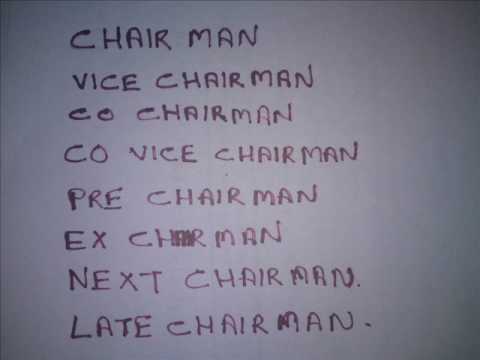 CHAIR MAN
VICE CHAIRMAN
CO CHAIRMAN
CO VICE CHAIRMAN
PRE CHAIRMAN
EX CHAIRMAN
NEXT CHAIRMAN.
LATE CHAIRMAN.